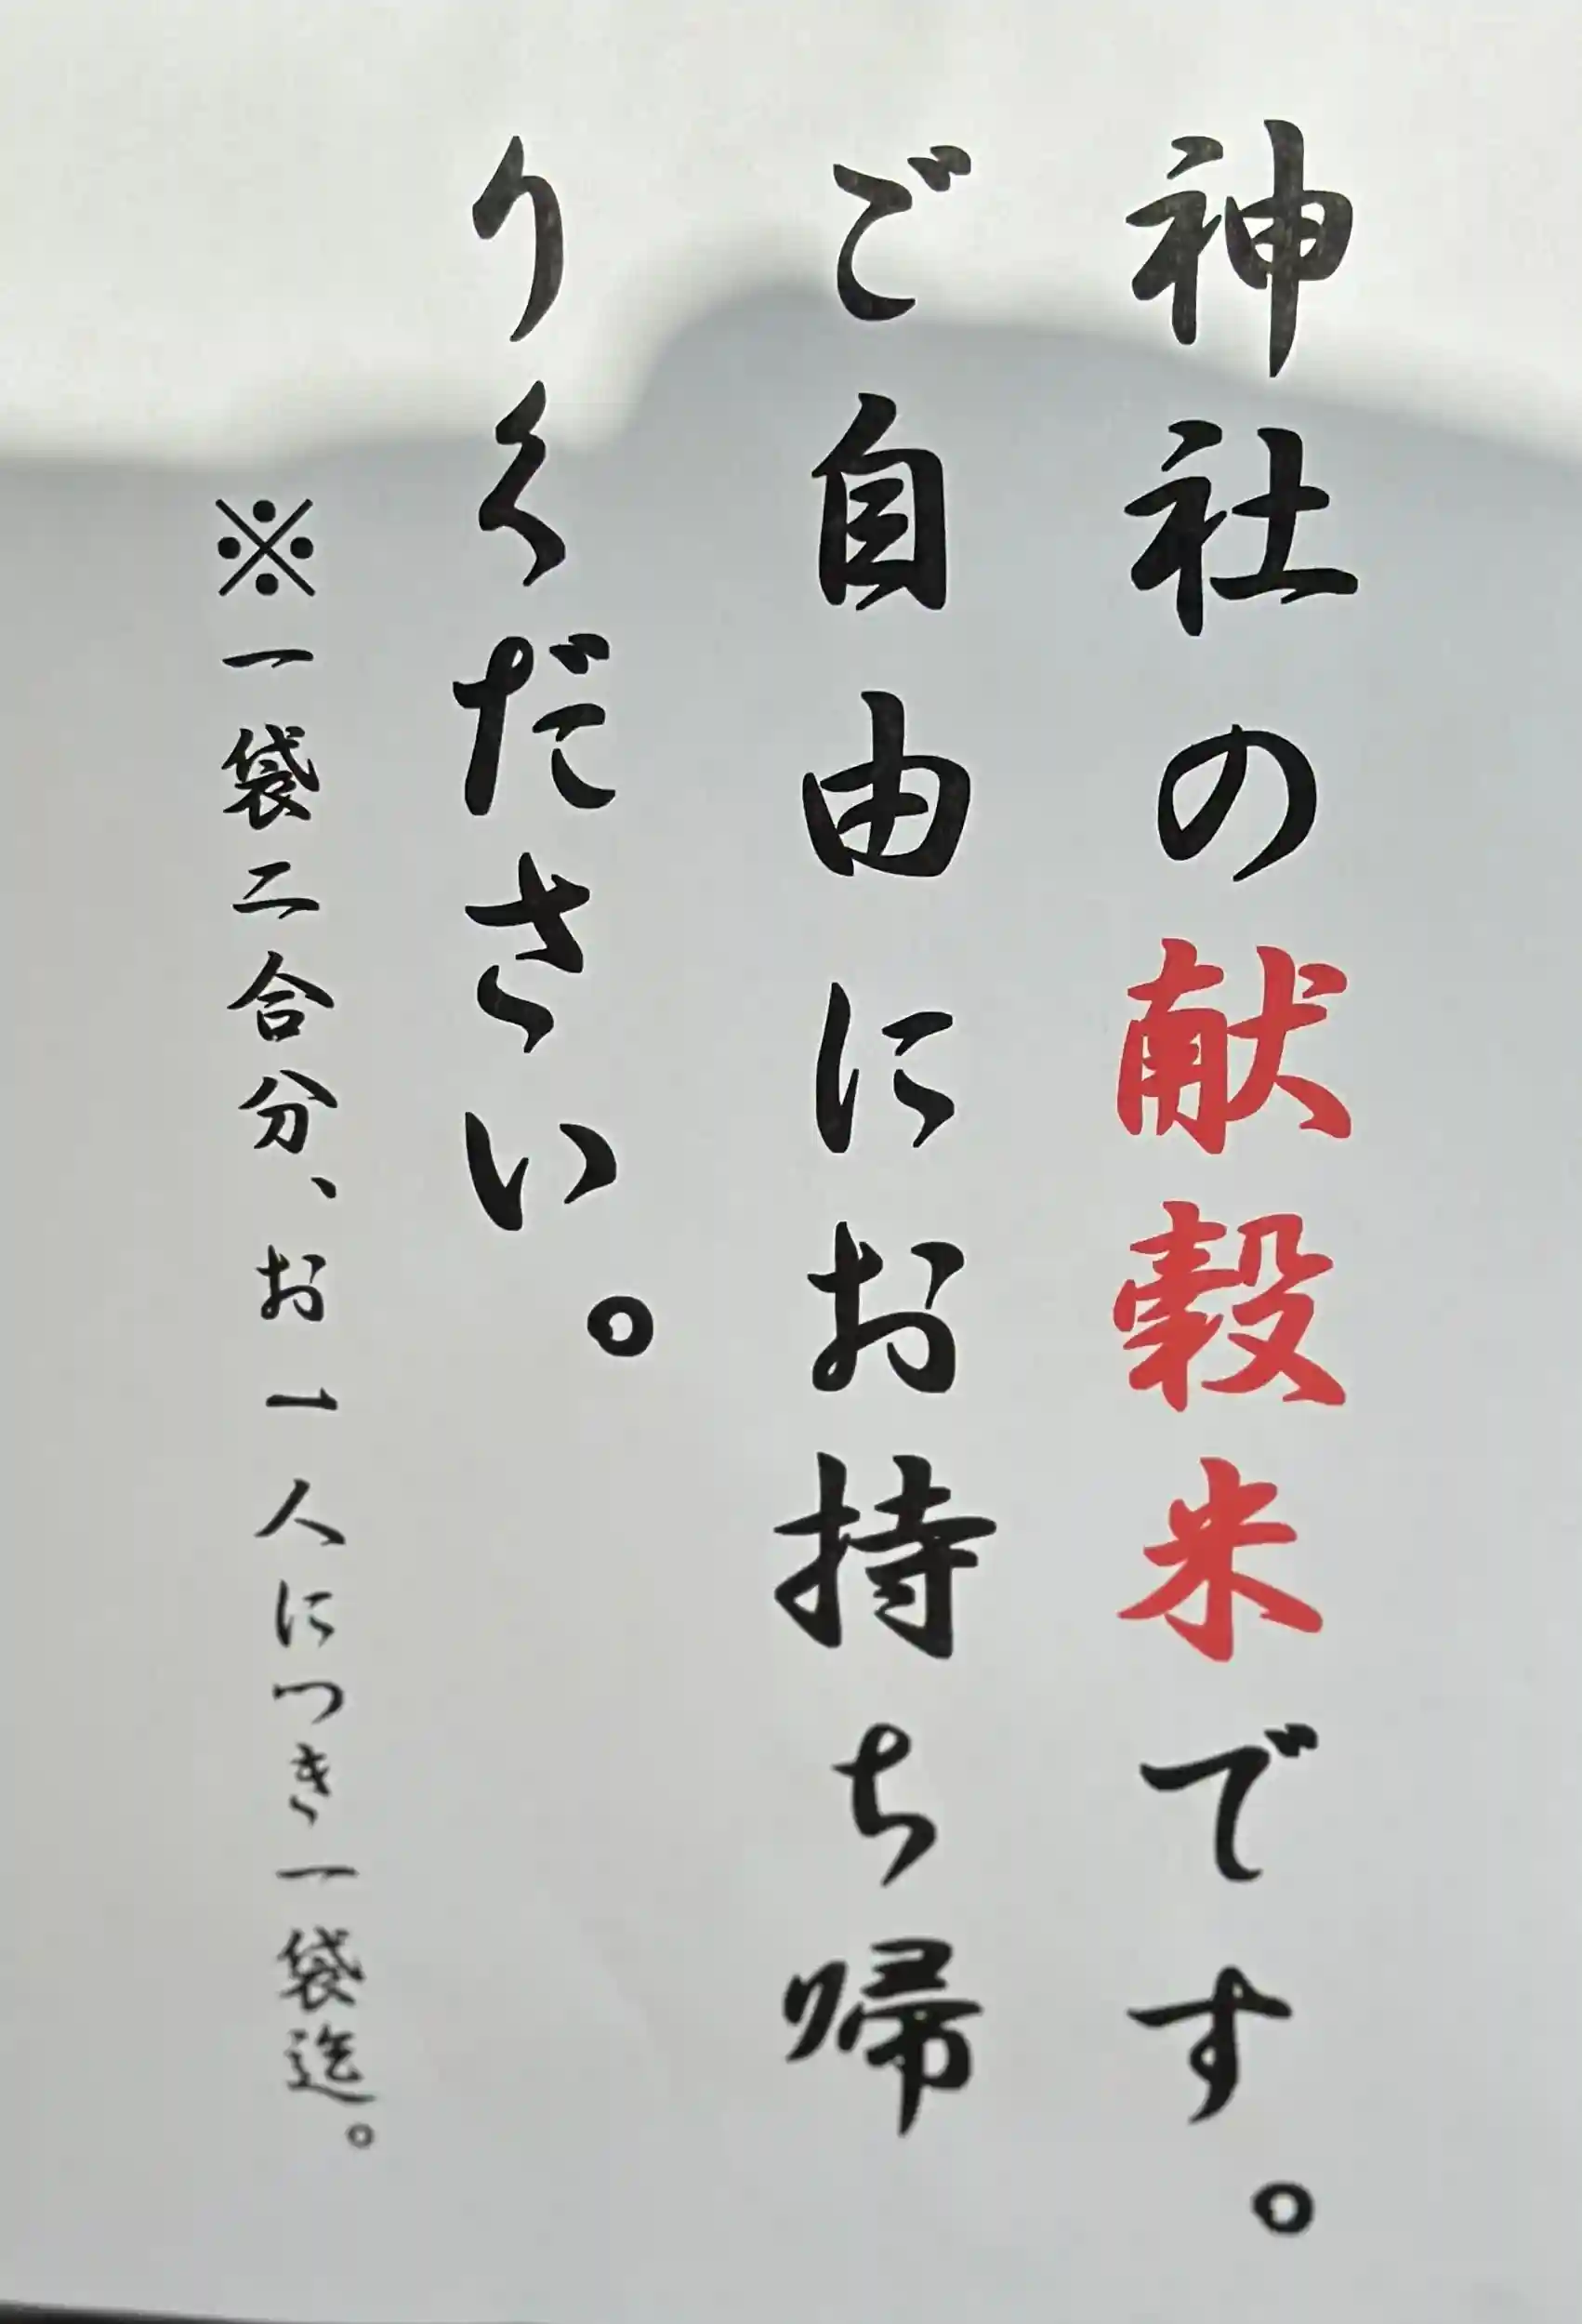 神社の献穀米です。
ご自由にお持ち帰
りください。
※一袋二合分、お一人につき一袋迄。